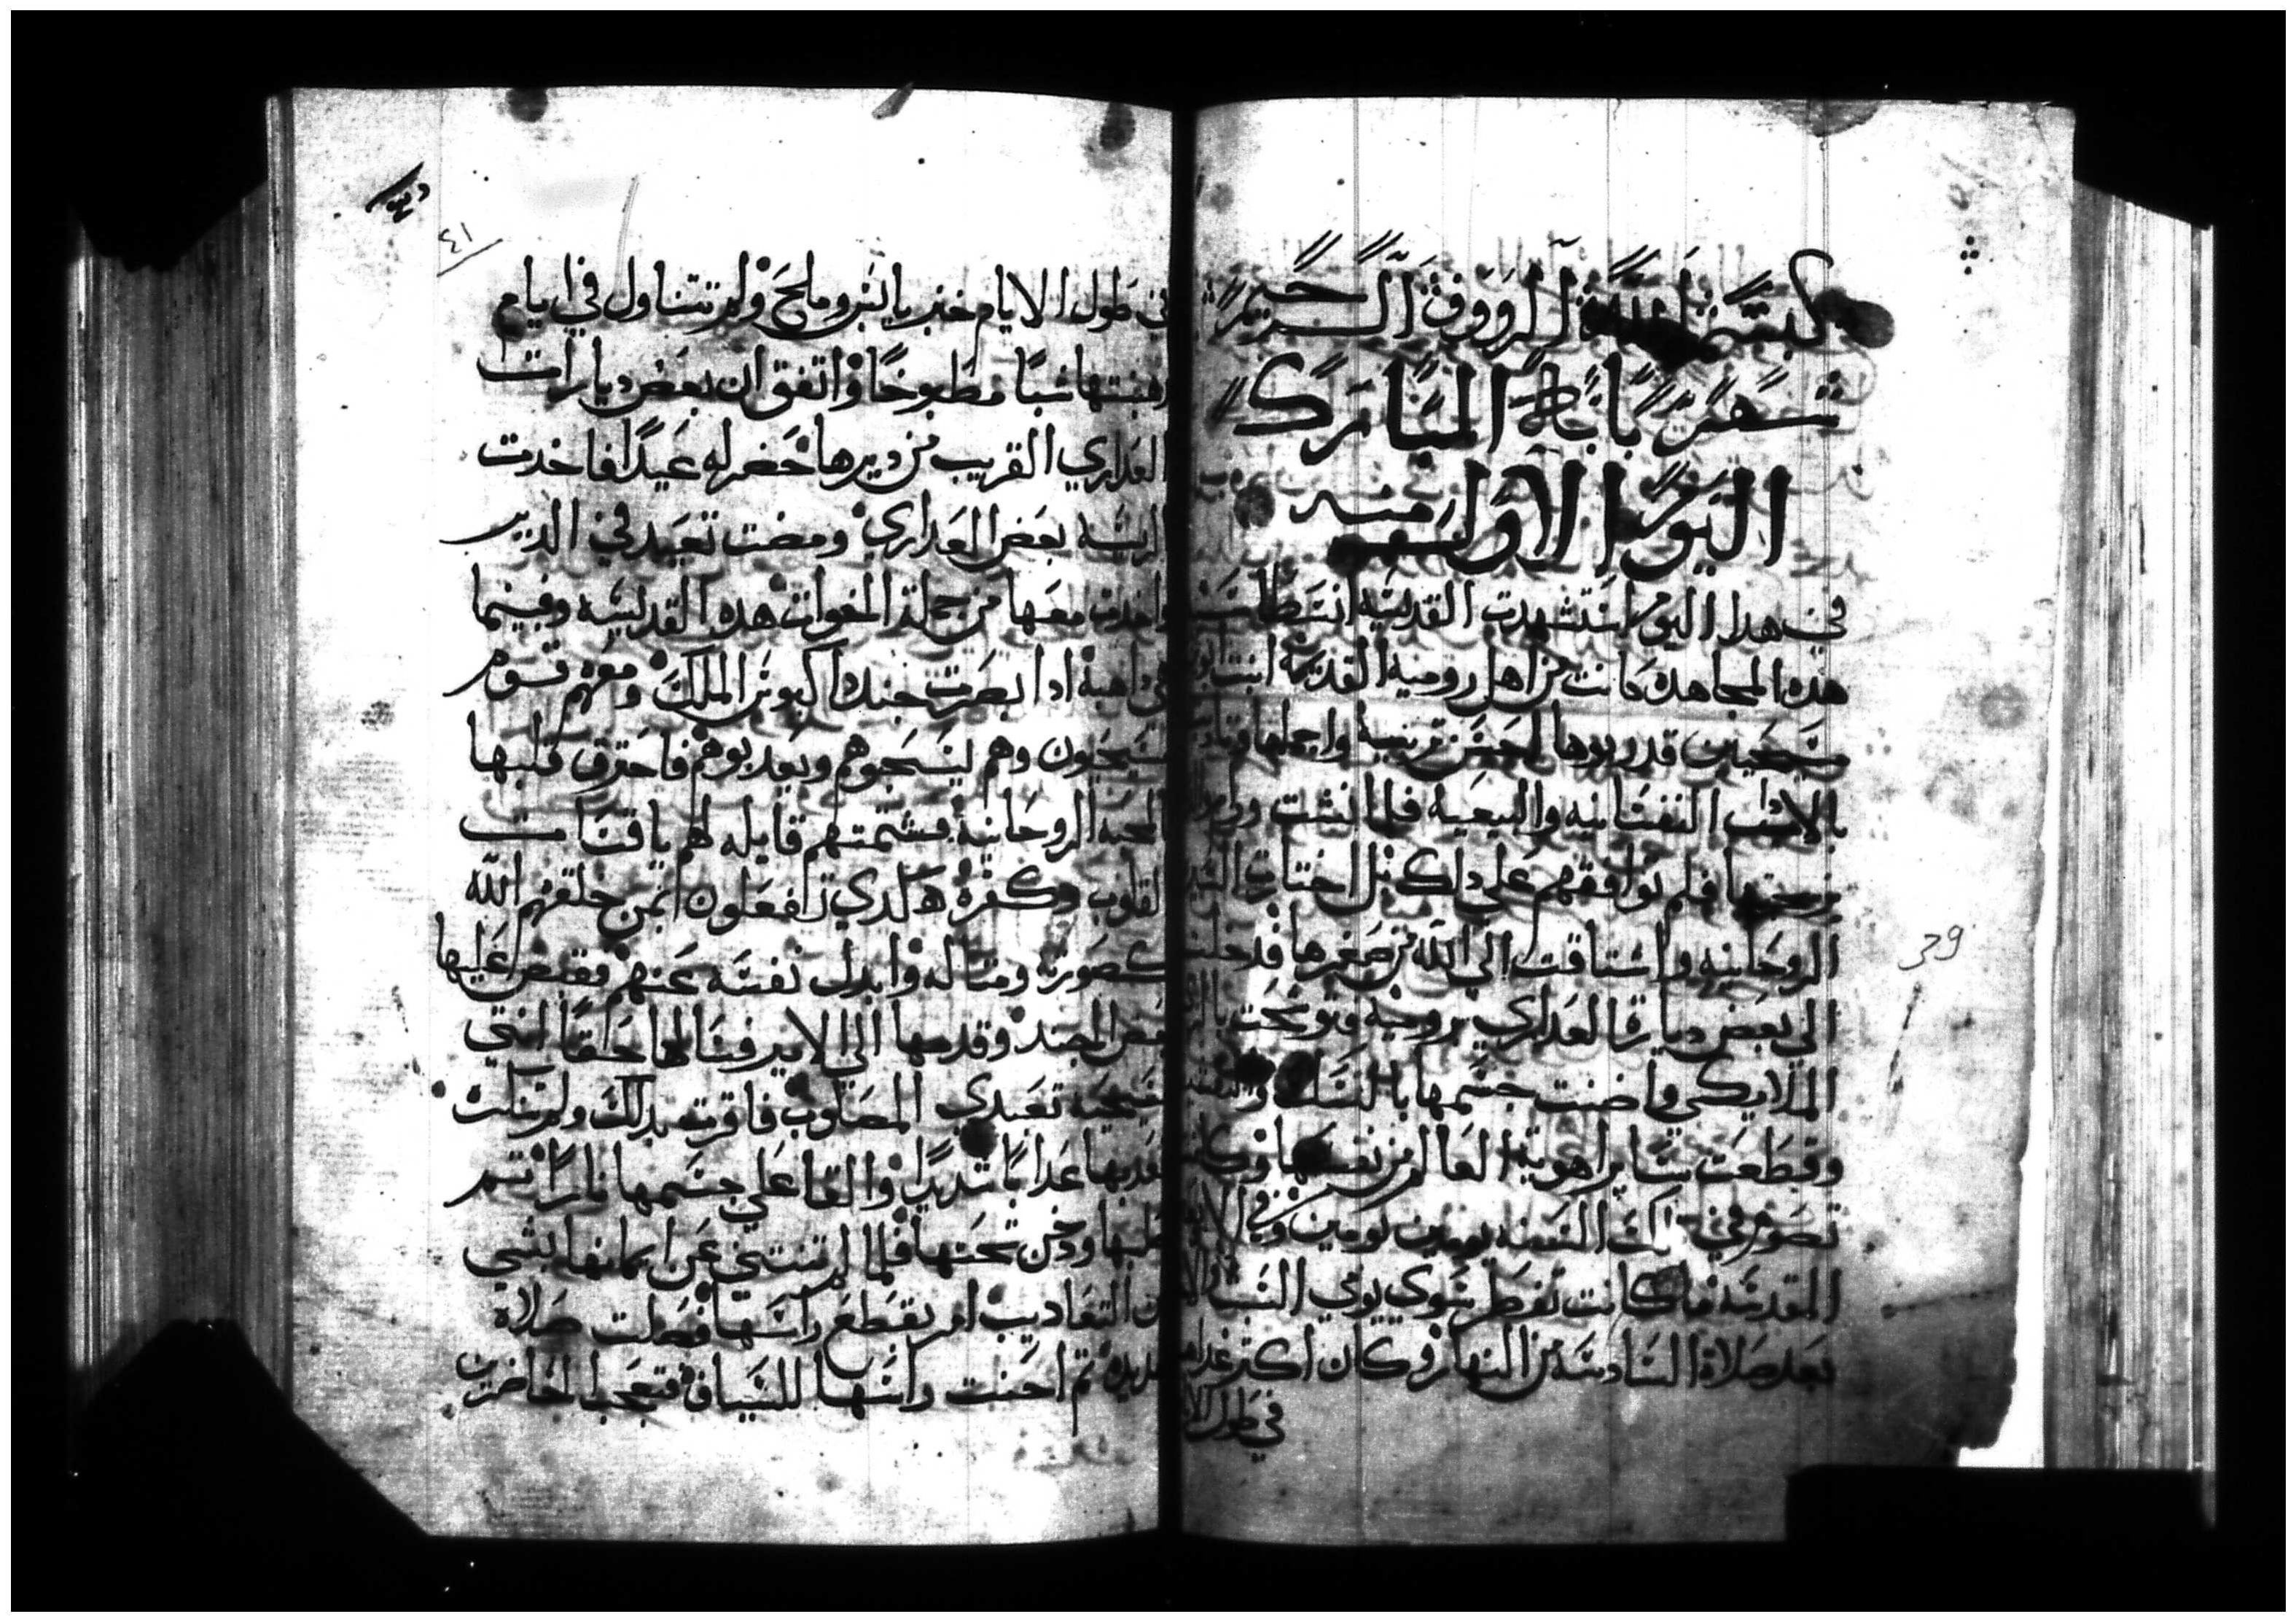 بسم الله الرووف الرحيم
شهر بابه المبارك
اليوم الاول منه
في هدا اليوم استشهدت القديسه انسطاسيه
هده المجاهده كانت من اهل روميه القديمه ابنت ابوين
مسيحيين قد ربوها احسن تربيه واجملها
بالاداب النفسانيه والبيعيه فلما نشت
تزيجها فلم توافقهم على دلك بل اختارت
الروحانيه واشتاقت الى الله من صغرها فدخلت
الي بعض ديارة العداري بروميه وتوشحت
الملايكي واضنت جسمها بالنسك
وقطعت ساير اهوية العالم من نفسها وكانت
تصوم في تلك السنه يومين يومين وفي
المقدسه فما كانت تفطر سوي يومي السبت
بعد صلاة السادسه من النهار وكان اكتر غداها
في طول الا
٤١
في طول الايام خبز يابس وملح ولم تتناول في ايام
رهبنتها شيا مطبوخا واتفق ان بعض ديارات
العداري القريب من ديرها حضر له عيدا فاخدت
الريسه بعض العداري ومضت تعيد في الدير
واخدت معها من جملة الاخوات هده القديسه وفيما
هي داهبة ادا ابصرت جند داكيوس الملك ومعهم قسوم
مسيحيون وهم ليسحبوهم ويعدبوهم فاحترق قلبها
بالمحبه الروحانيه فشتمتهم قايله لهم يا قساة
القلوب وكفرة هكدي تفعلون بمن خلقهم الله
كصورته ومتاله وابدل نفسه عنهم فقبض عليها
بعض الجند وقدمها الى الامير فسالها حقا انتي
مسيحيه تعبدي المصلوب فاقرت بدلك ولم تنكر
فعدبها عدابا شديدا والقا علي جسمها نارا تم
صلبها ودخن تحتها فلما لم تنتني عن ايمانها بشي
من التعاديب امر بقطع راسها فصلت صلاة
مديده تم احنت راسها للسياف فتعجب الحاضرين
39